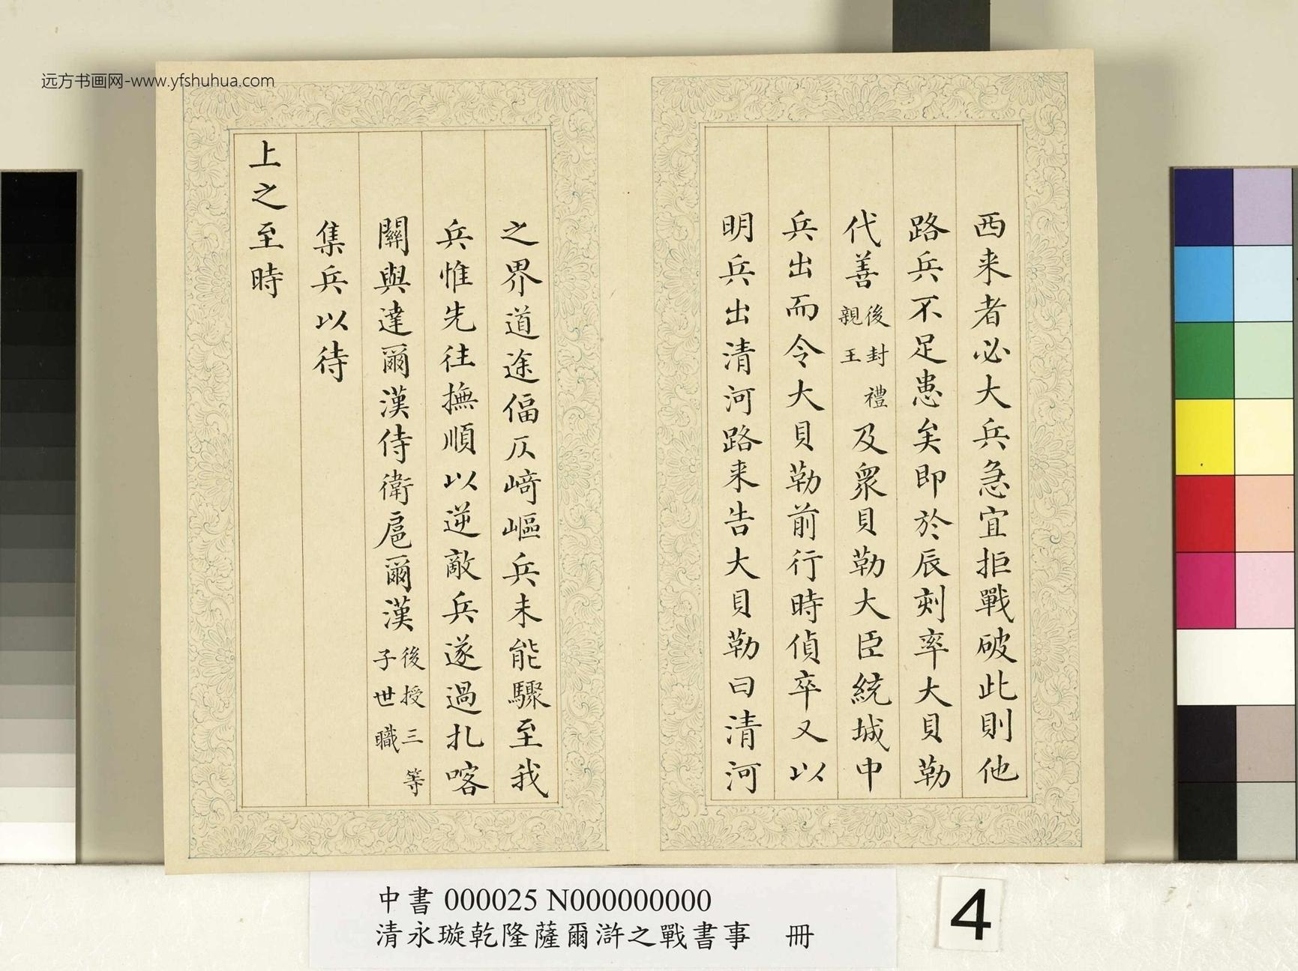 远方书画网-www.yfshuhua.com
西来者必大兵急宜拒戰破此則他
路兵不足患矣即於辰刻率大貝勒
代善後封禮親王及衆貝勒大臣統城中
兵出而令大貝勒前行時偵卒又以
明兵出清河路来告大貝勒曰清河
之界道途偪仄崎嶇兵未能驟至我
兵惟先往撫順以逆敵兵遂過扎喀
關與達爾漢侍衛扈爾漢後授三等子世職
集兵以待
上之至時
中書 000025 N000000000
清永璇乾隆薩爾滸之戰書事 冊
4